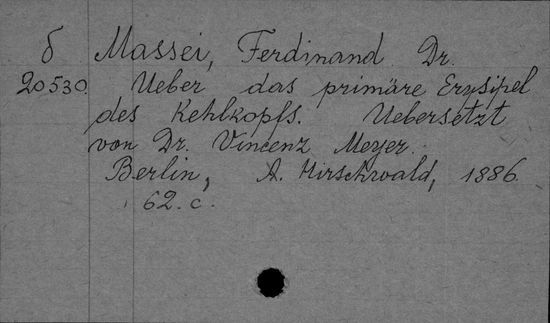 8 Massei, Ferdinand Dr.
20530. Ueber das primäre Erysipel
des Kehlkopfs. Uebersetzt
von Dr. Vincenz Meyer.
Berlin, A. Hirschwald, 1886.
62. c.